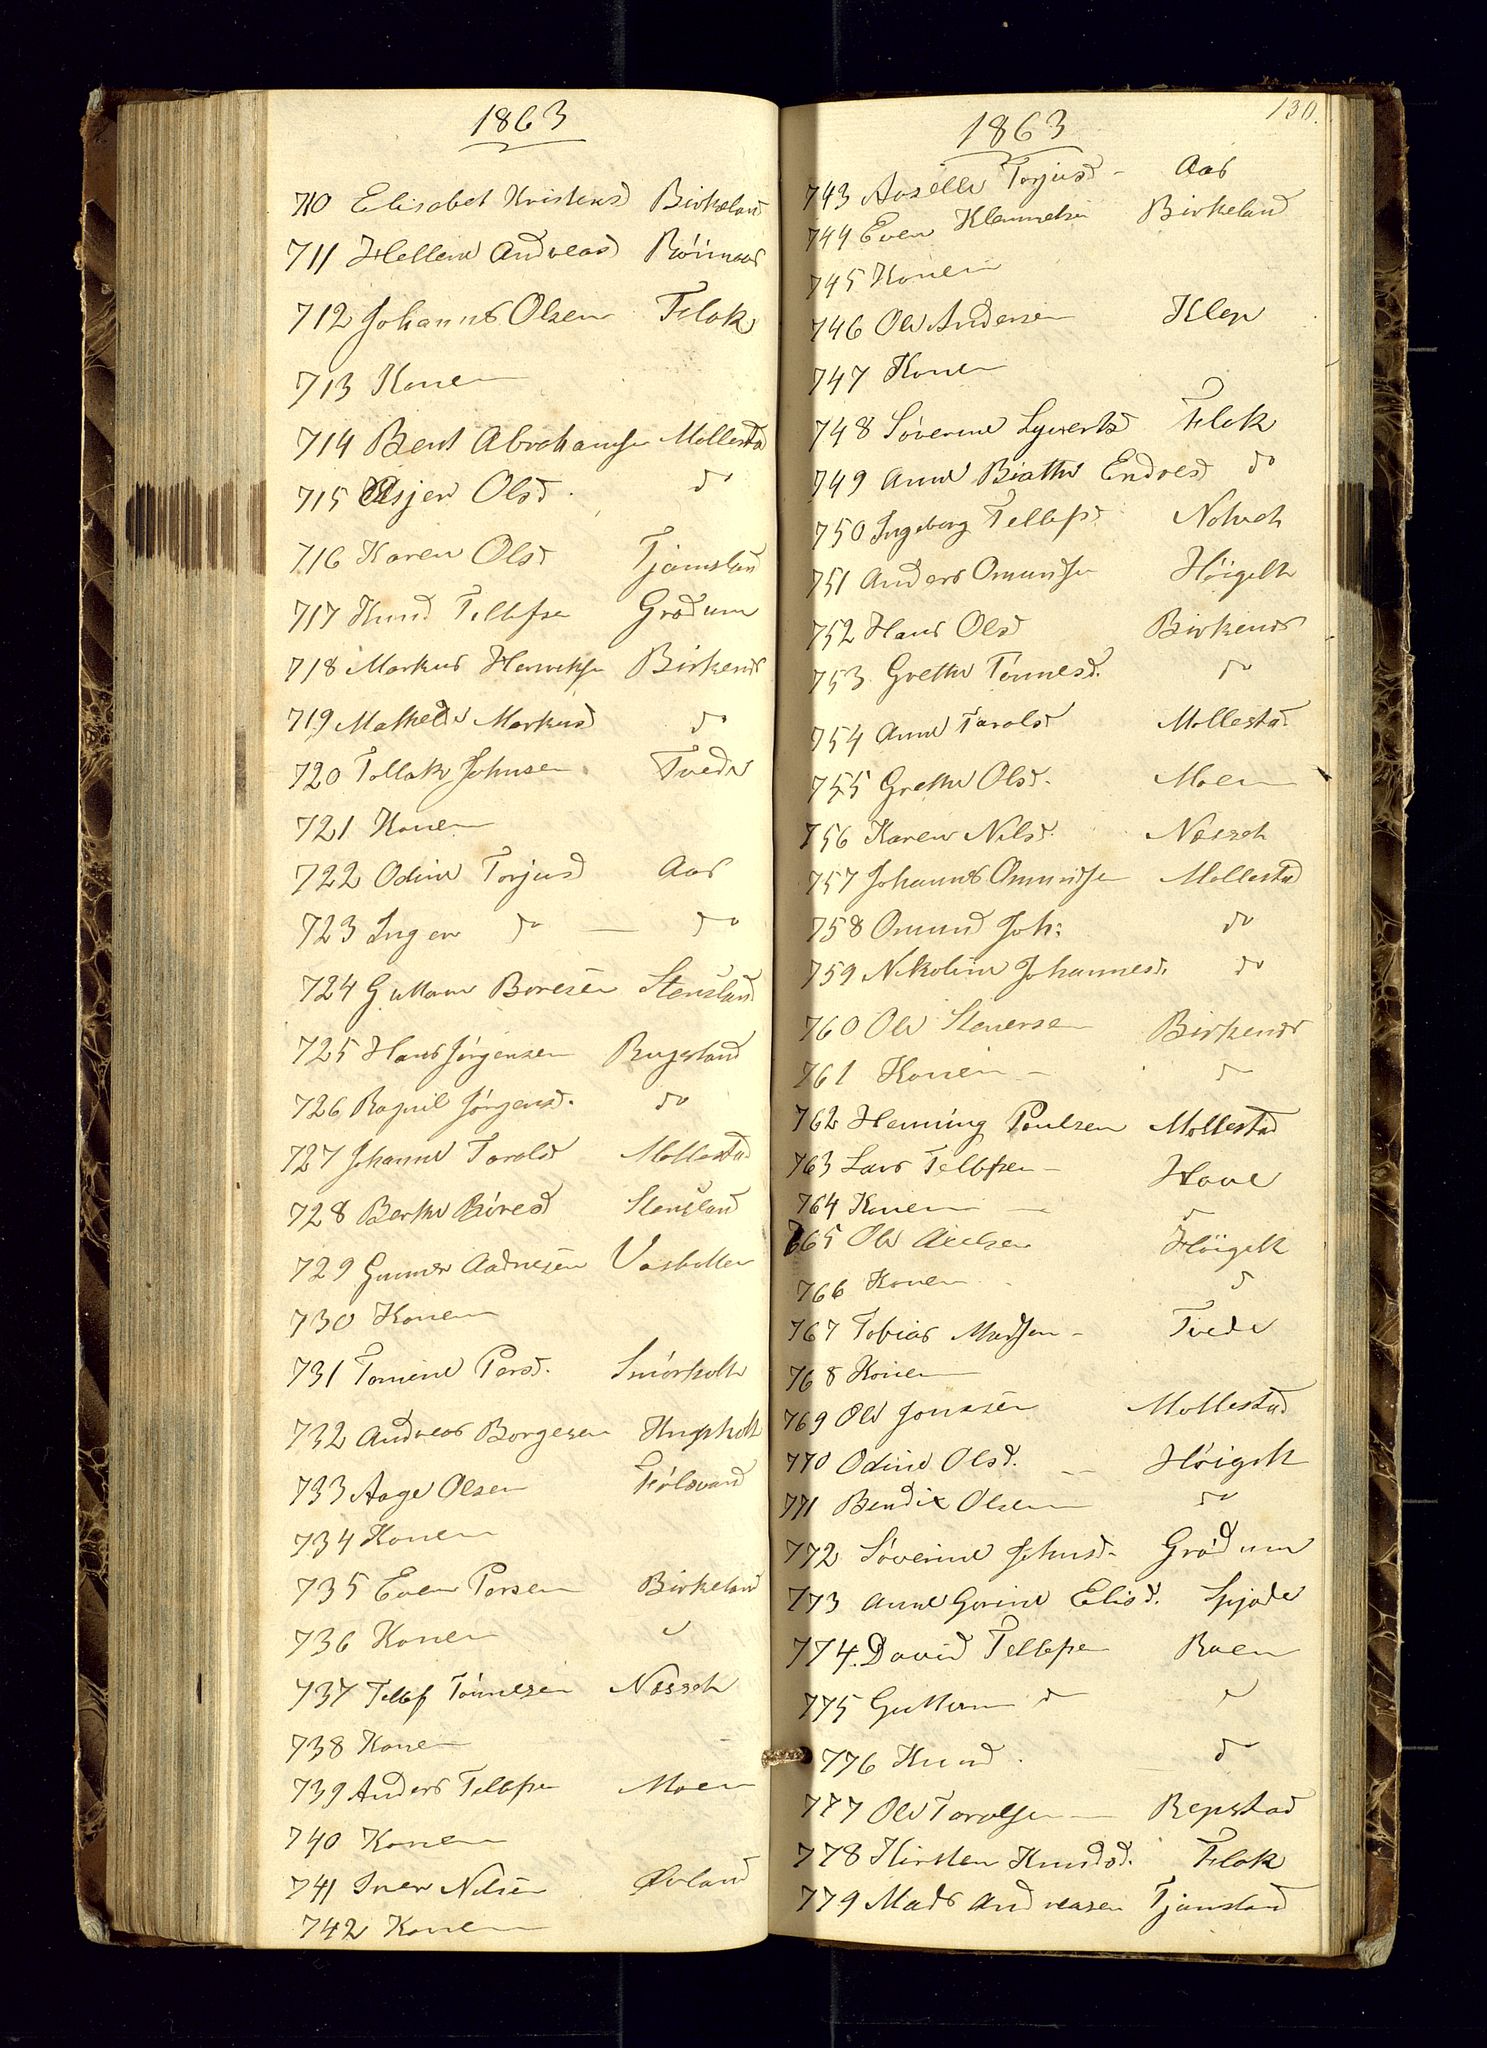 1863
710 Elisabet Kristensd Birkeland
711 Hellene Andreasd Röimaas
712 Johannes Olsen Flak
713 Konen
714 Bent Abrahamsen Mollestad
715 Asjer Olsd. do
716 Karen Olsd Tjamsland
717 Knud Tellefsen Grødum
718 Markus Henriksen Birkenes
719 Mathilde Markusd do
720 Tollak Johnsen Tvede
721 Konen
722 Odine Torjusd Aas
723 Inger do — do
724 Guttorm Boresen Stensland
725 Hans Jørgensen Rugsland
726 Ragnil Jørgensd. do
727 Johanne Taralsd Mollestad
728 Berthe Böresd Stensland
729 Gunner Aadnesen Vasbotten
730 Konen
731 Tomine Persd. Smörholt
732 Andreas Borgesen
733 Aage Olsen Fölevand
734 Konen
735 Even Persen Birkeland
736 Konen
737 Tellef Tönnesen Næsset
738 Konen
739 Anders Tellefsen Moen
740 Konen
741 Iver Nilsen Øvland
742 Konen
130.
1863
743 Aaselle Torjusd - Aas
744 Even Klemmetsen Birkeland
745 Konen
746 Ole Andersen Klep
747 Konen
748 Søverine Syvertsd Flak
749 Anne Biathe Endresd do
750 Ingeborg Tellefsd.
751 Anders Omundsen Höigelt
752 Hans Olsd Birkenes
753 Grethe Tönnesd. do
754 Anne Taralsd Mollestad
755 Grethe Olsd. Moen
756 Karen Nilsd. Næsset
757 Johannes Omundsen Mollestad
758 Omund Joh: do
759 Nikoline Johannesd. do
760 Ole Stenersen Birkenes
761 Konen — do
762 Henning Poulsen Mollestad
763 Lars Tellefsen — Hove
764 Konen — d
765 Ole Axelsen Höigelt
766 Konen d
767 Tobias Madsen - Tvede
768 Konen
769 Ole Jonssen Mollestad
770 Odine Olsd. -- Höigelt
771 Bendix Olsen do
772 Söverine Johnsd- Grödum
773 Anne Gorine Elisd. Spjode
774. David Tellefsen Boen
775 Guttorm d d
776 Knud d
777 Ole Taralsen — Repstad
778 Kirsten Knudsd. Flak
779 Mads Andreasen Tjamsland